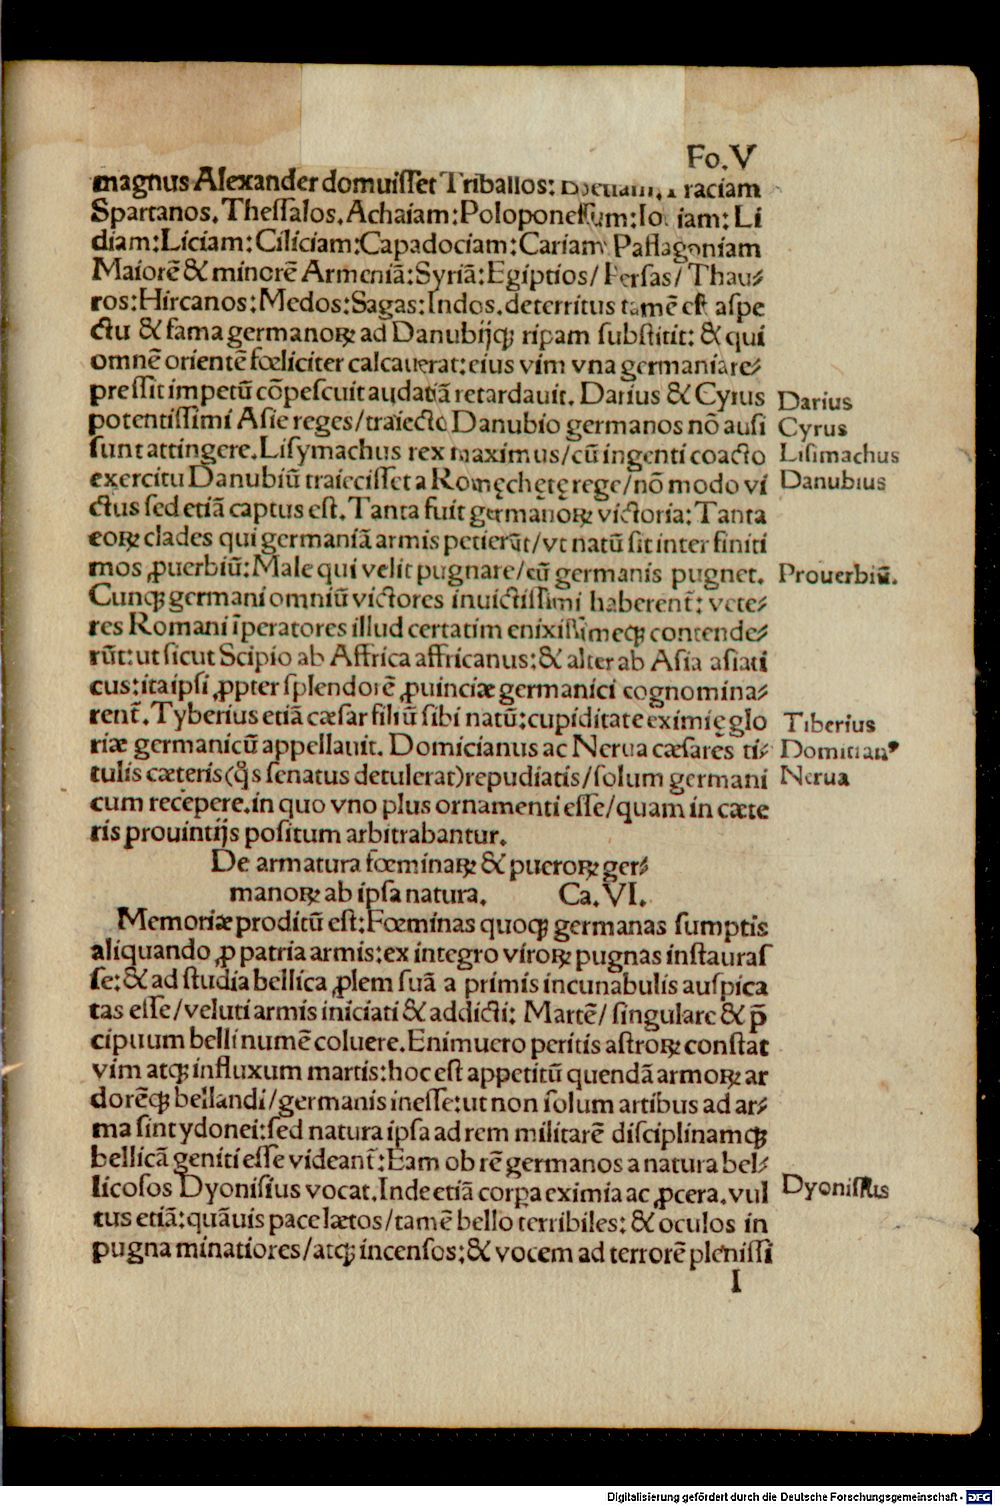 Fo.V
magnus Alexander domuisset Triballos: raciam
Spartanos.Thessalos.Achaiam:Poloponessum:Io iam:Li
diam:Liciam:Ciliciam:Capadociam:Cariam Paflagoniam
Maiorē & minorē Armeniā:Syriā:Egiptios/ Persas/ Thau⸗
ros:Hircanos:Medos:Sagas:Indos.deterritus tamē est aspe
ctu & fama germanoꝝ ad Danubijqꝫ ripam substitit: & qui
omnē orientē fœliciter calcauerat:eius vim vna germania re⸗
pressit impetū cōpescuit audatiā retardauit. Darius & Cyrus
potentissimi Asie reges/traiecto Danubio germanos nō ausi
sunt attingere.Lisymachus rex maximus/cū ingenti coacto
exercitu Danubiū traiecisset a Romęchętę rege/nō modo vi
ctus sed etiā captus est.Tanta fuit germanoꝝ victoria:Tanta
eoꝝ clades qui germaniā armis petierūt/vt natū sit inter finiti
mos ꝓuerbiū:Male qui velit pugnare/cū germanis pugnet.
Cunqꝫ germani omniū victores inuictissimi haberent̄: vete⸗
res Romani īperatores illud certatim enixissimeqꝫ contende⸗
rūt:ut sicut Scipio ab Affrica affricanus:& alter ab Asia asiati
cus:ita ipsi ꝓpter splendorē ꝓuinciæ germanici cognomina⸗
rent̄.Tyberius etiā cæsar filiū sibi natū:cupiditate eximię glo
riæ germanicū appellauit. Domicianus ac Nerua cæsares ti⸗
tulis cæteris(q̄s senatus detulerat)repudiatis/solum germani
cum recepere.in quo vno plus ornamenti esse/quam in cæte
ris prouintijs positum arbitrabantur.
De armatura fœminaꝝ & pueroꝝ ger⸗
manoꝝ ab ipsa natura. Ca.VI.
Memoriæ proditū est:Fœminas quoqꝫ germanas sumptis
aliquando ꝓ patria armis:ex integro viroꝝ pugnas instauras
se:& ad studia bellica ꝓlem suā a primis incunabulis auspica
tas esse/veluti armis iniciati & addicti: Martē/ singulare & p̄
cipuum belli numē coluere.Enimuero peritis astroꝝ constat
vim atqꝫ influxum martis:hoc est appetitū quendā armoꝝ ar
dorēqꝫ bellandi/germanis inesse:ut non solum artibus ad ar⸗
ma sint ydonei:sed natura ipsa ad rem militarē disciplinamqꝫ
bellicā geniti esse videant̄:Eam ob rē germanos a natura bel⸗
licosos Dyonisius vocat.Inde etiā corpa eximia ac ꝓcera.vul
tus etiā:quāuis pace lætos/tamē bello terribiles: & oculos in
pugna minatiores/atqꝫ incensos:& vocem ad terrorē plenissi
I
Darius
Cyrus
Lisimachus
Danubius
Prouerbiū.
Tiberius
Domitianꝰ
Nerua
Dyonisius
Digitalisierung gefördert durch die Deutsche Forschungsgemeinschaft - DFG